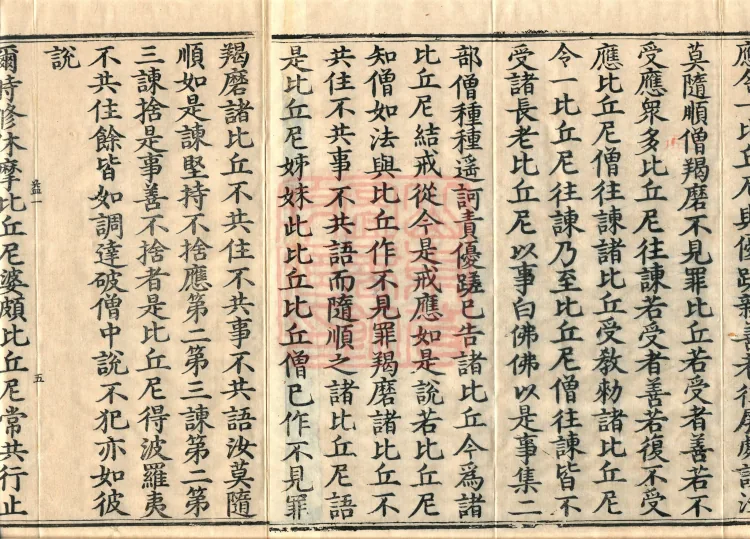 莫隨順僧羯磨不見罪比丘若受者善若不
受應衆多比丘尼往諫若受者善若復不受
應比丘尼僧往諫諸比丘受教勅諸比丘尼
令一比丘尼往諫乃至比丘尼僧往諫皆不
受諸長老比丘尼以事白佛佛以是事集二
部僧種種遥訶責優蹉已告諸比丘今爲諸
比丘尼結戒從今是戒應如是説若比丘尼
知僧如法與比丘作不見罪羯磨諸比丘不
共住不共事不共語而隨順之諸比丘尼語
是比丘尼姊妹此比丘比丘僧已作不見罪
羯磨諸比丘不共住不共事不共語汝莫隨
順如是諫堅持不捨應第二第三諫第二第
三諫捨是事善不捨者是比丘尼得波羅夷
不共住餘皆如調達破僧中説不犯亦如彼
説
五
爾時修休摩比丘尼婆頗比丘尼常共行止